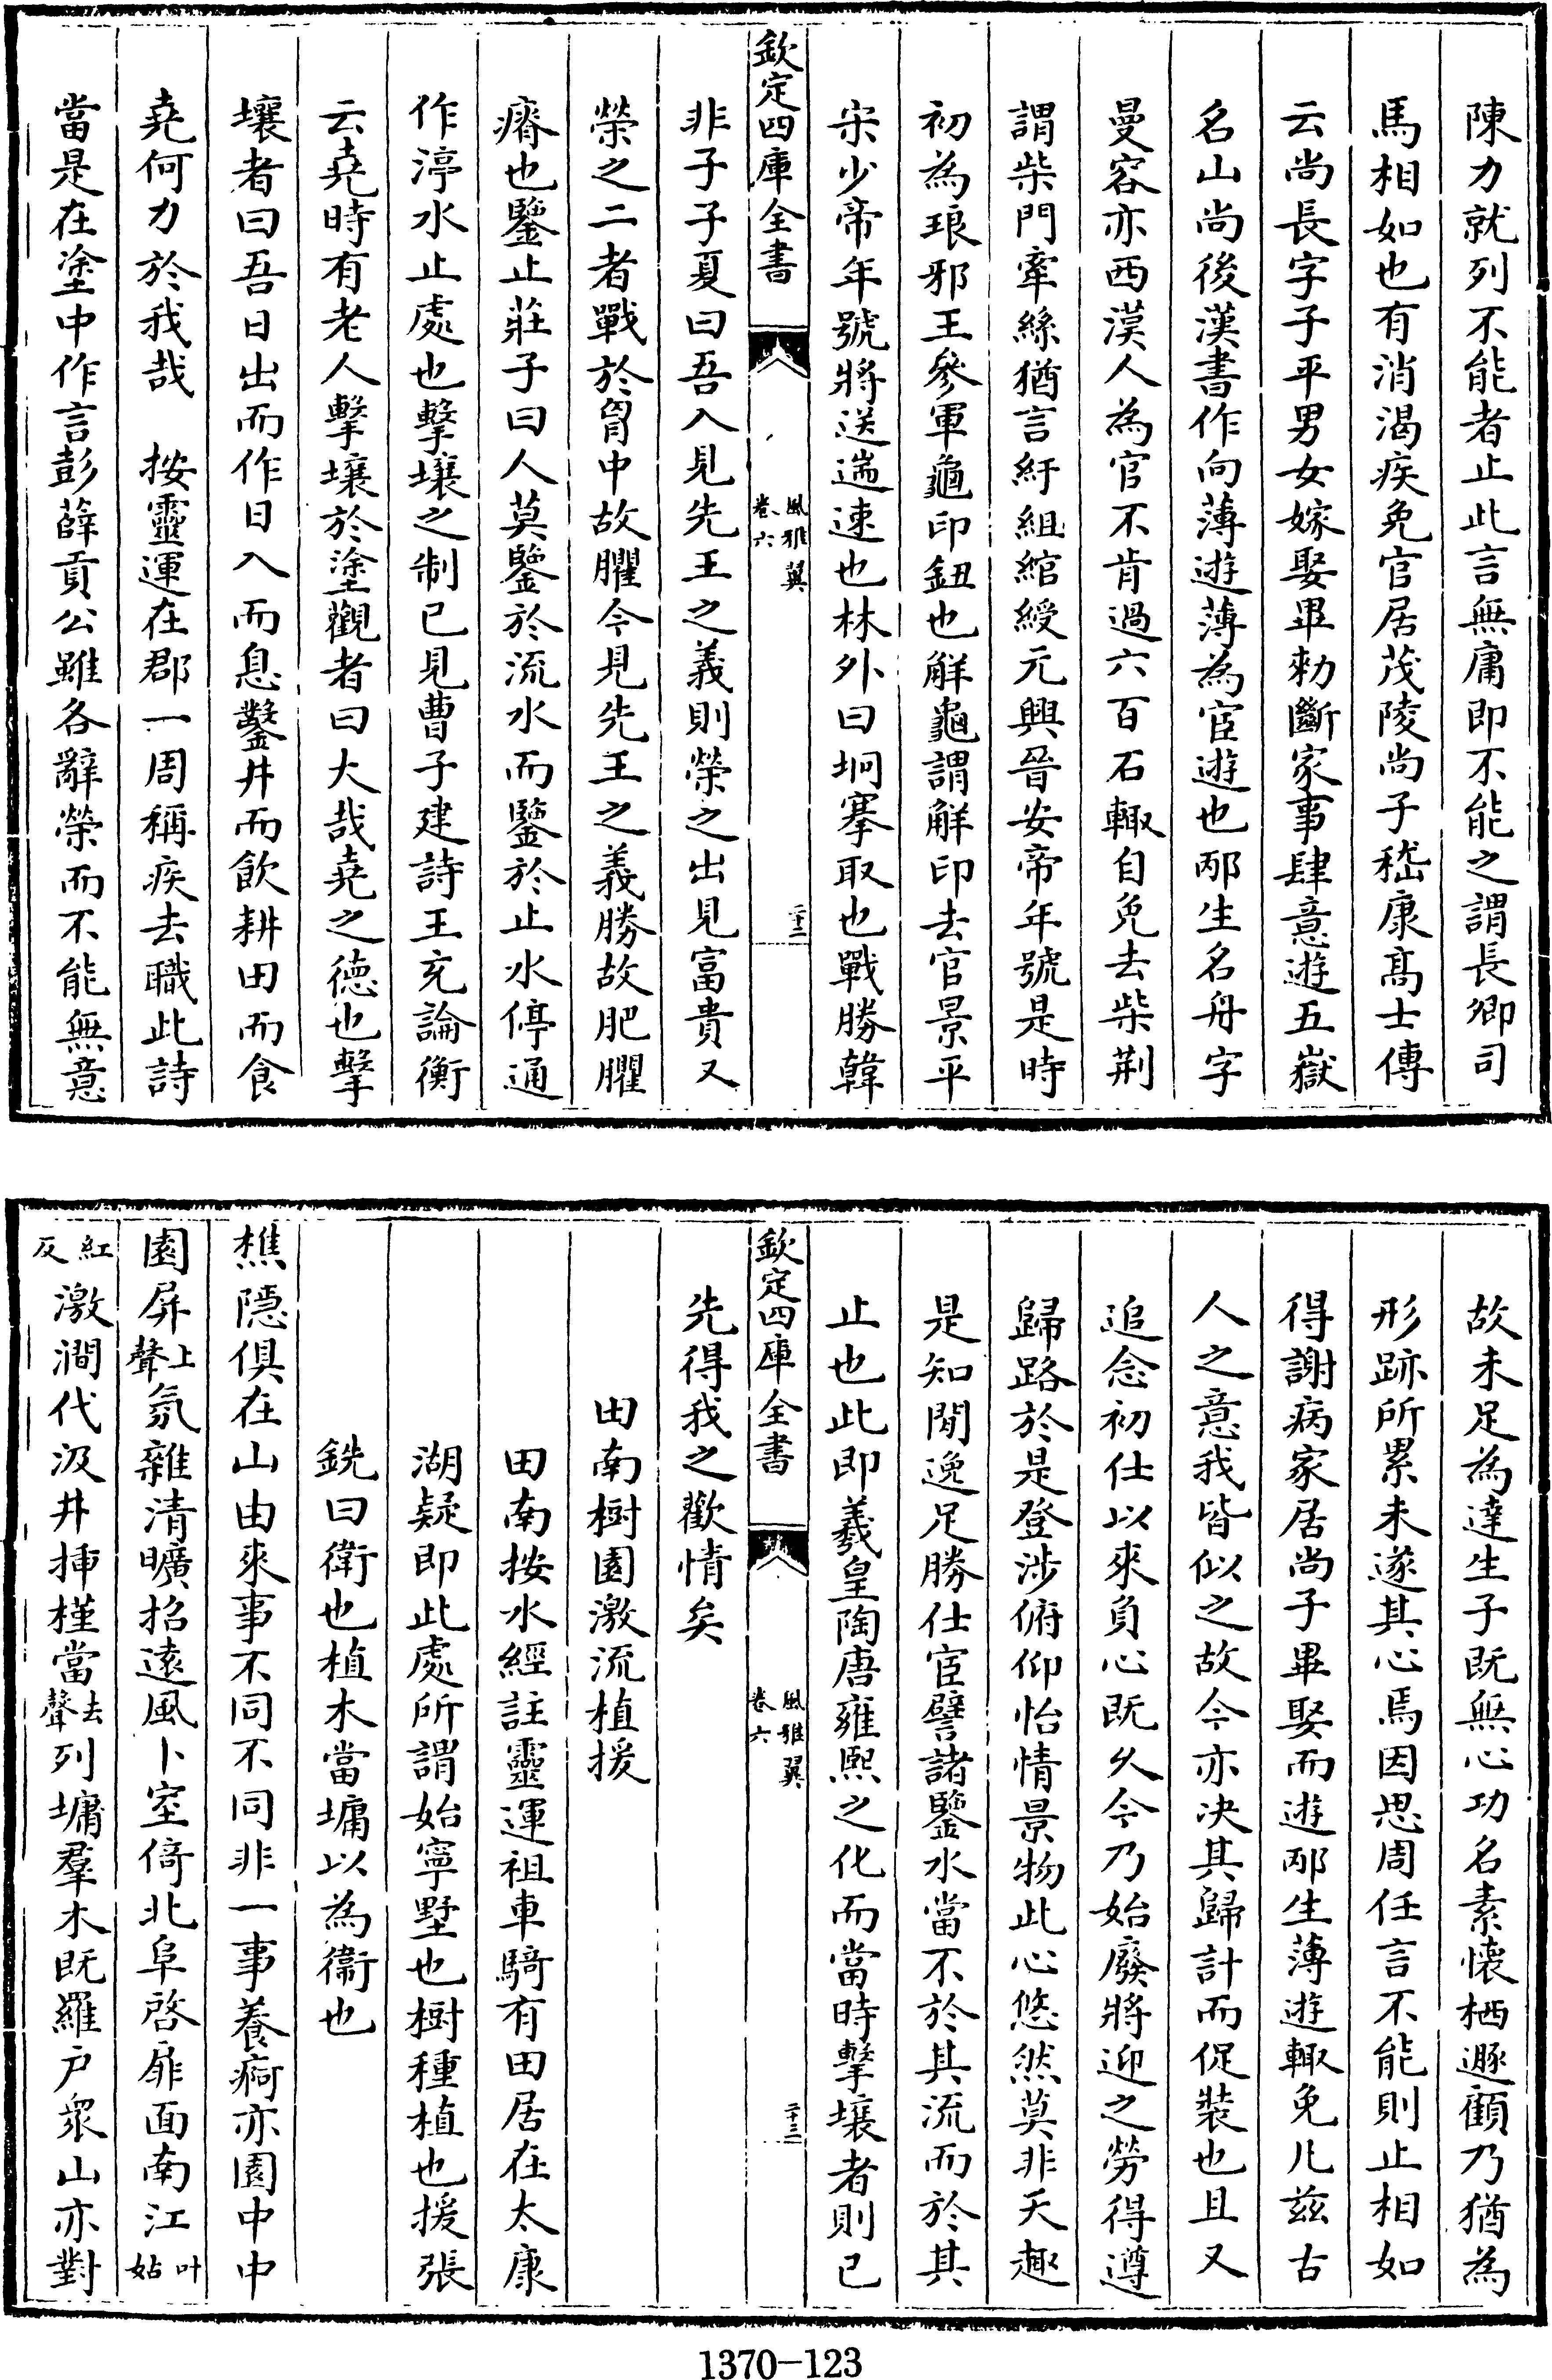 陳力就列不能者止此言無庸即不能之謂長卿司
馬相如也有消渴疾免官居茂陵尚子嵇康髙士傳
云尚長字子平男女嫁娶畢勑斷家事肆意遊五嶽
名山尚後漢書作向薄遊薄為宦遊也邴生名丹字
曼容亦西漢人為官不肯過六百石輙自免去柴荆
謂柴門牽絲猶言紆組綰綬元興晉安帝年號是時
初為琅邪王參軍龜印鈕也解龜謂解印去官景平
宋少帝年號將送遄速也林外曰坰搴取也戰勝韓
欽定四庫全書
風雅翼
卷六
二十二
非子子夏曰吾入見先王之義則榮之出見富貴又
榮之二者戰於胷中故臞今見先王之義勝故肥臞
瘠也鑒止莊子曰人莫鑒於流水而鑒於止水停通
作渟水止處也擊壤之制已見曹子建詩王充論衡
云堯時有老人擊壤於塗觀者曰大哉堯之德也擊
壤者曰吾日出而作日入而息鑿井而飲耕田而食
堯何力於我哉　按靈運在郡一周稱疾去職此詩
當是在塗中作言彭薛貢公雖各辭榮而不能無意
故未足為達生子既無心功名素懐栖遯顧乃猶為
形跡所累未遂其心焉因思周任言不能則止相如
得謝病家居尚子畢娶而遊邴生薄遊輙免凡兹古
人之意我皆似之故今亦决其歸計而促装也且又
追念初仕以來負心既乆今乃始廢將迎之勞得遵
歸路於是登涉俯仰怡情景物此心悠然莫非天趣
是知閒逸足勝仕宦譬諸鑒水當不於其流而於其
止也此即羲皇陶唐雍熙之化而當時擊壤者則已
欽定四庫全書
風雅翼
卷六
二十三
先得我之歡情矣
田南樹園激流植援
田南按水經註靈運祖車騎有田居在太康
湖疑即此處所謂始寧墅也樹種植也援張
銑曰衛也植木當墉以為衞也
樵隠俱在山由來事不同不同非一事養痾亦園中中
園屏上聲氛雜清曠招遠風卜室倚北阜啓扉面南江叶姑
紅反激澗代汲井挿槿當去聲列墉羣木既羅户衆山亦對
1370—123